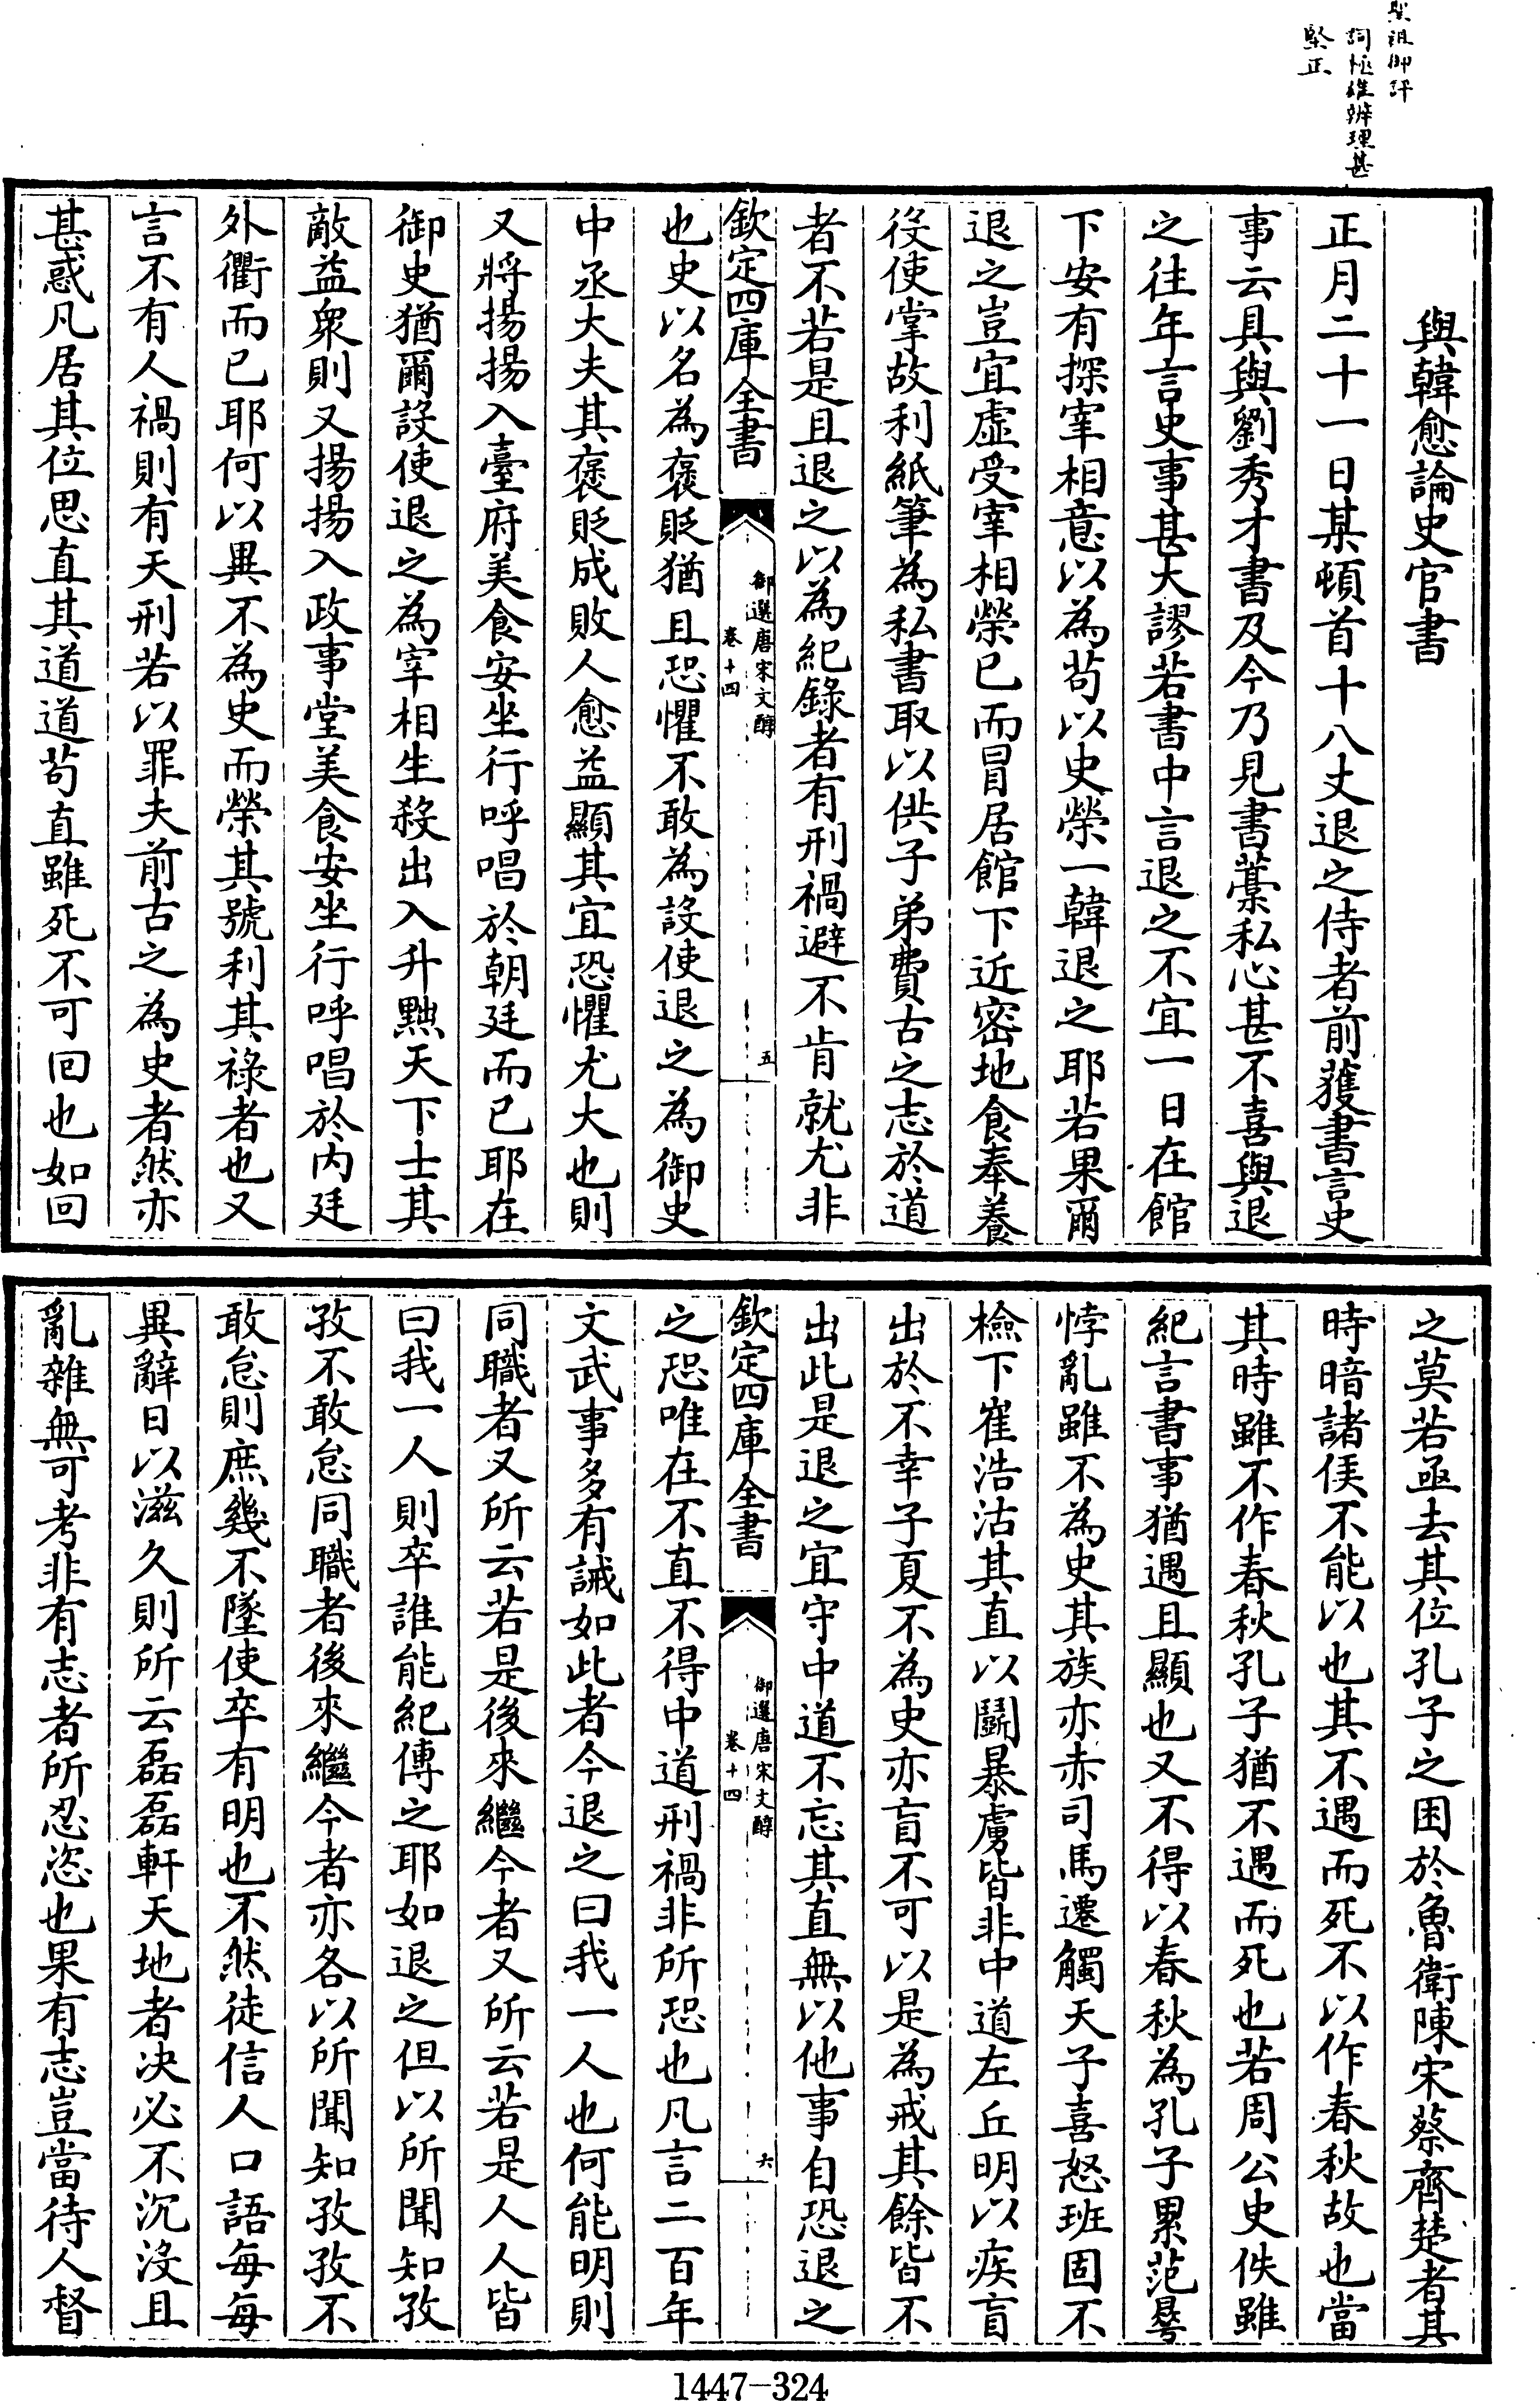 聖祖御評
詞極雄辨理甚
堅正
與韓愈論史官書
正月二十一日某頓首十八丈退之侍者前獲書言史
事云具與劉秀才書及今乃見書藁私心甚不喜與退
之往年言史事甚大謬若書中言退之不宜一日在館
下安有探宰相意以為茍以史榮一韓退之耶若果爾
退之豈宜虛受宰相榮已而冒居館下近密地食奉養
役使掌故利紙筆為私書取以供子弟費古之志於道
者不若是且退之以為紀錄者有刑禍避不肯就尤非
欽定四庫全書
御選唐宋文醇
卷十四
五
也史以名為褒貶猶且恐懼不敢為設使退之為御史
中丞大夫其褒貶成敗人愈益顯其宜恐懼尤大也則
又將揚揚入臺府美食安坐行呼唱於朝廷而已耶在
御史猶爾設使退之為宰相生殺出入升黜天下士其
敵益衆則又揚揚入政事堂美食安坐行呼唱於內廷
外衢而已耶何以異不為史而榮其號利其祿者也又
言不有人禍則有天刑若以罪夫前古之為史者然亦
甚惑凡居其位思直其道道茍直雖死不可回也如回
之莫若亟去其位孔子之困於魯衛陳宋蔡齊楚者其
時暗諸侯不能以也其不遇而死不以作春秋故也當
其時雖不作春秋孔子猶不遇而死也若周公史佚雖
紀言書事猶遇且顯也又不得以春秋為孔子累范曅
悖亂雖不為史其族亦赤司馬遷觸天子喜怒班固不
檢下崔浩沽其直以鬬暴虜皆非中道左丘明以疾盲
出於不幸子夏不為史亦盲不可以是為戒其餘皆不
出此是退之宜守中道不忘其直無以他事自恐退之
欽定四庫全書
御選唐宋文醇
卷十四
六
之恐唯在不直不得中道刑禍非所恐也凡言二百年
文武事多有誡如此者今退之曰我一人也何能明則
同職者又所云若是後來繼今者又所云若是人人皆
曰我一人則卒誰能紀傳之耶如退之但以所聞知孜
孜不敢怠同職者後來繼今者亦各以所聞知孜孜不
敢怠則庶幾不墜使卒有明也不然徒信人口語每每
異辭日以滋久則所云磊磊軒天地者决必不沉沒且
亂雜無可考非有志者所忍恣也果有志豈當待人督
1447-324